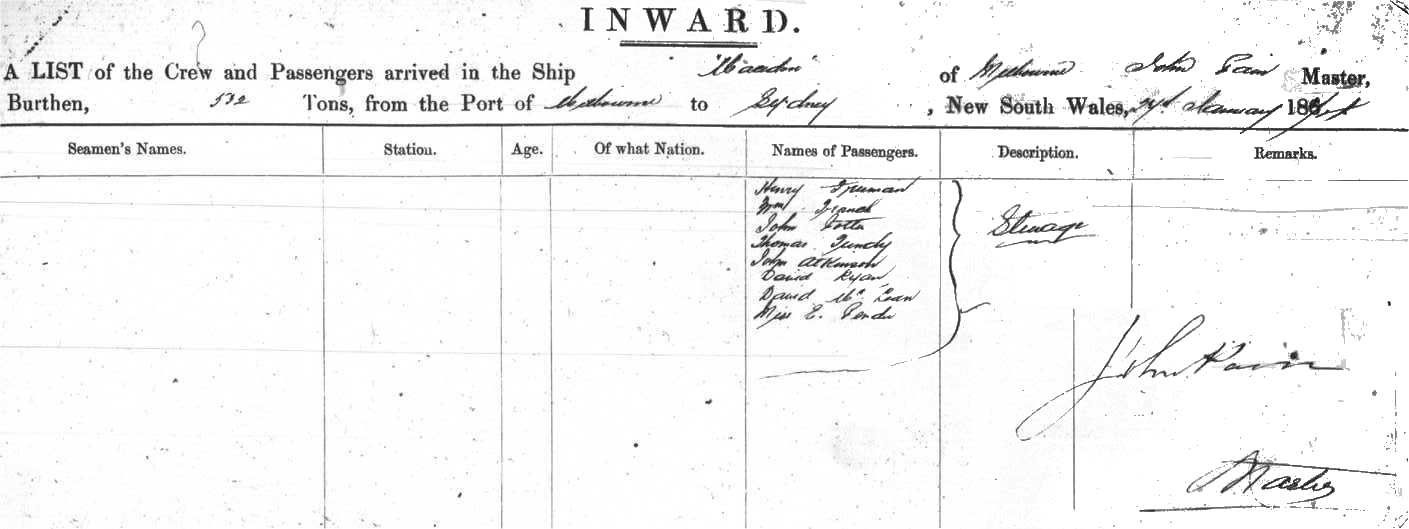 INWARD.
A LIST of the Crew and Passengers arrived in the Ship of Melbourne John Pain Master,
Burthen, 532 Tons, from the Port of Melbourne to Sydney , New South Wales, January 186
Seamen's Names. Station. Age. Of what Nation. Names of Passengers. Description. Remarks.
Henry
Wm
John
Thomas
John Atkinson
David Ryan
David Mc Lean
Miss E.
Steerage
John Pain
Master